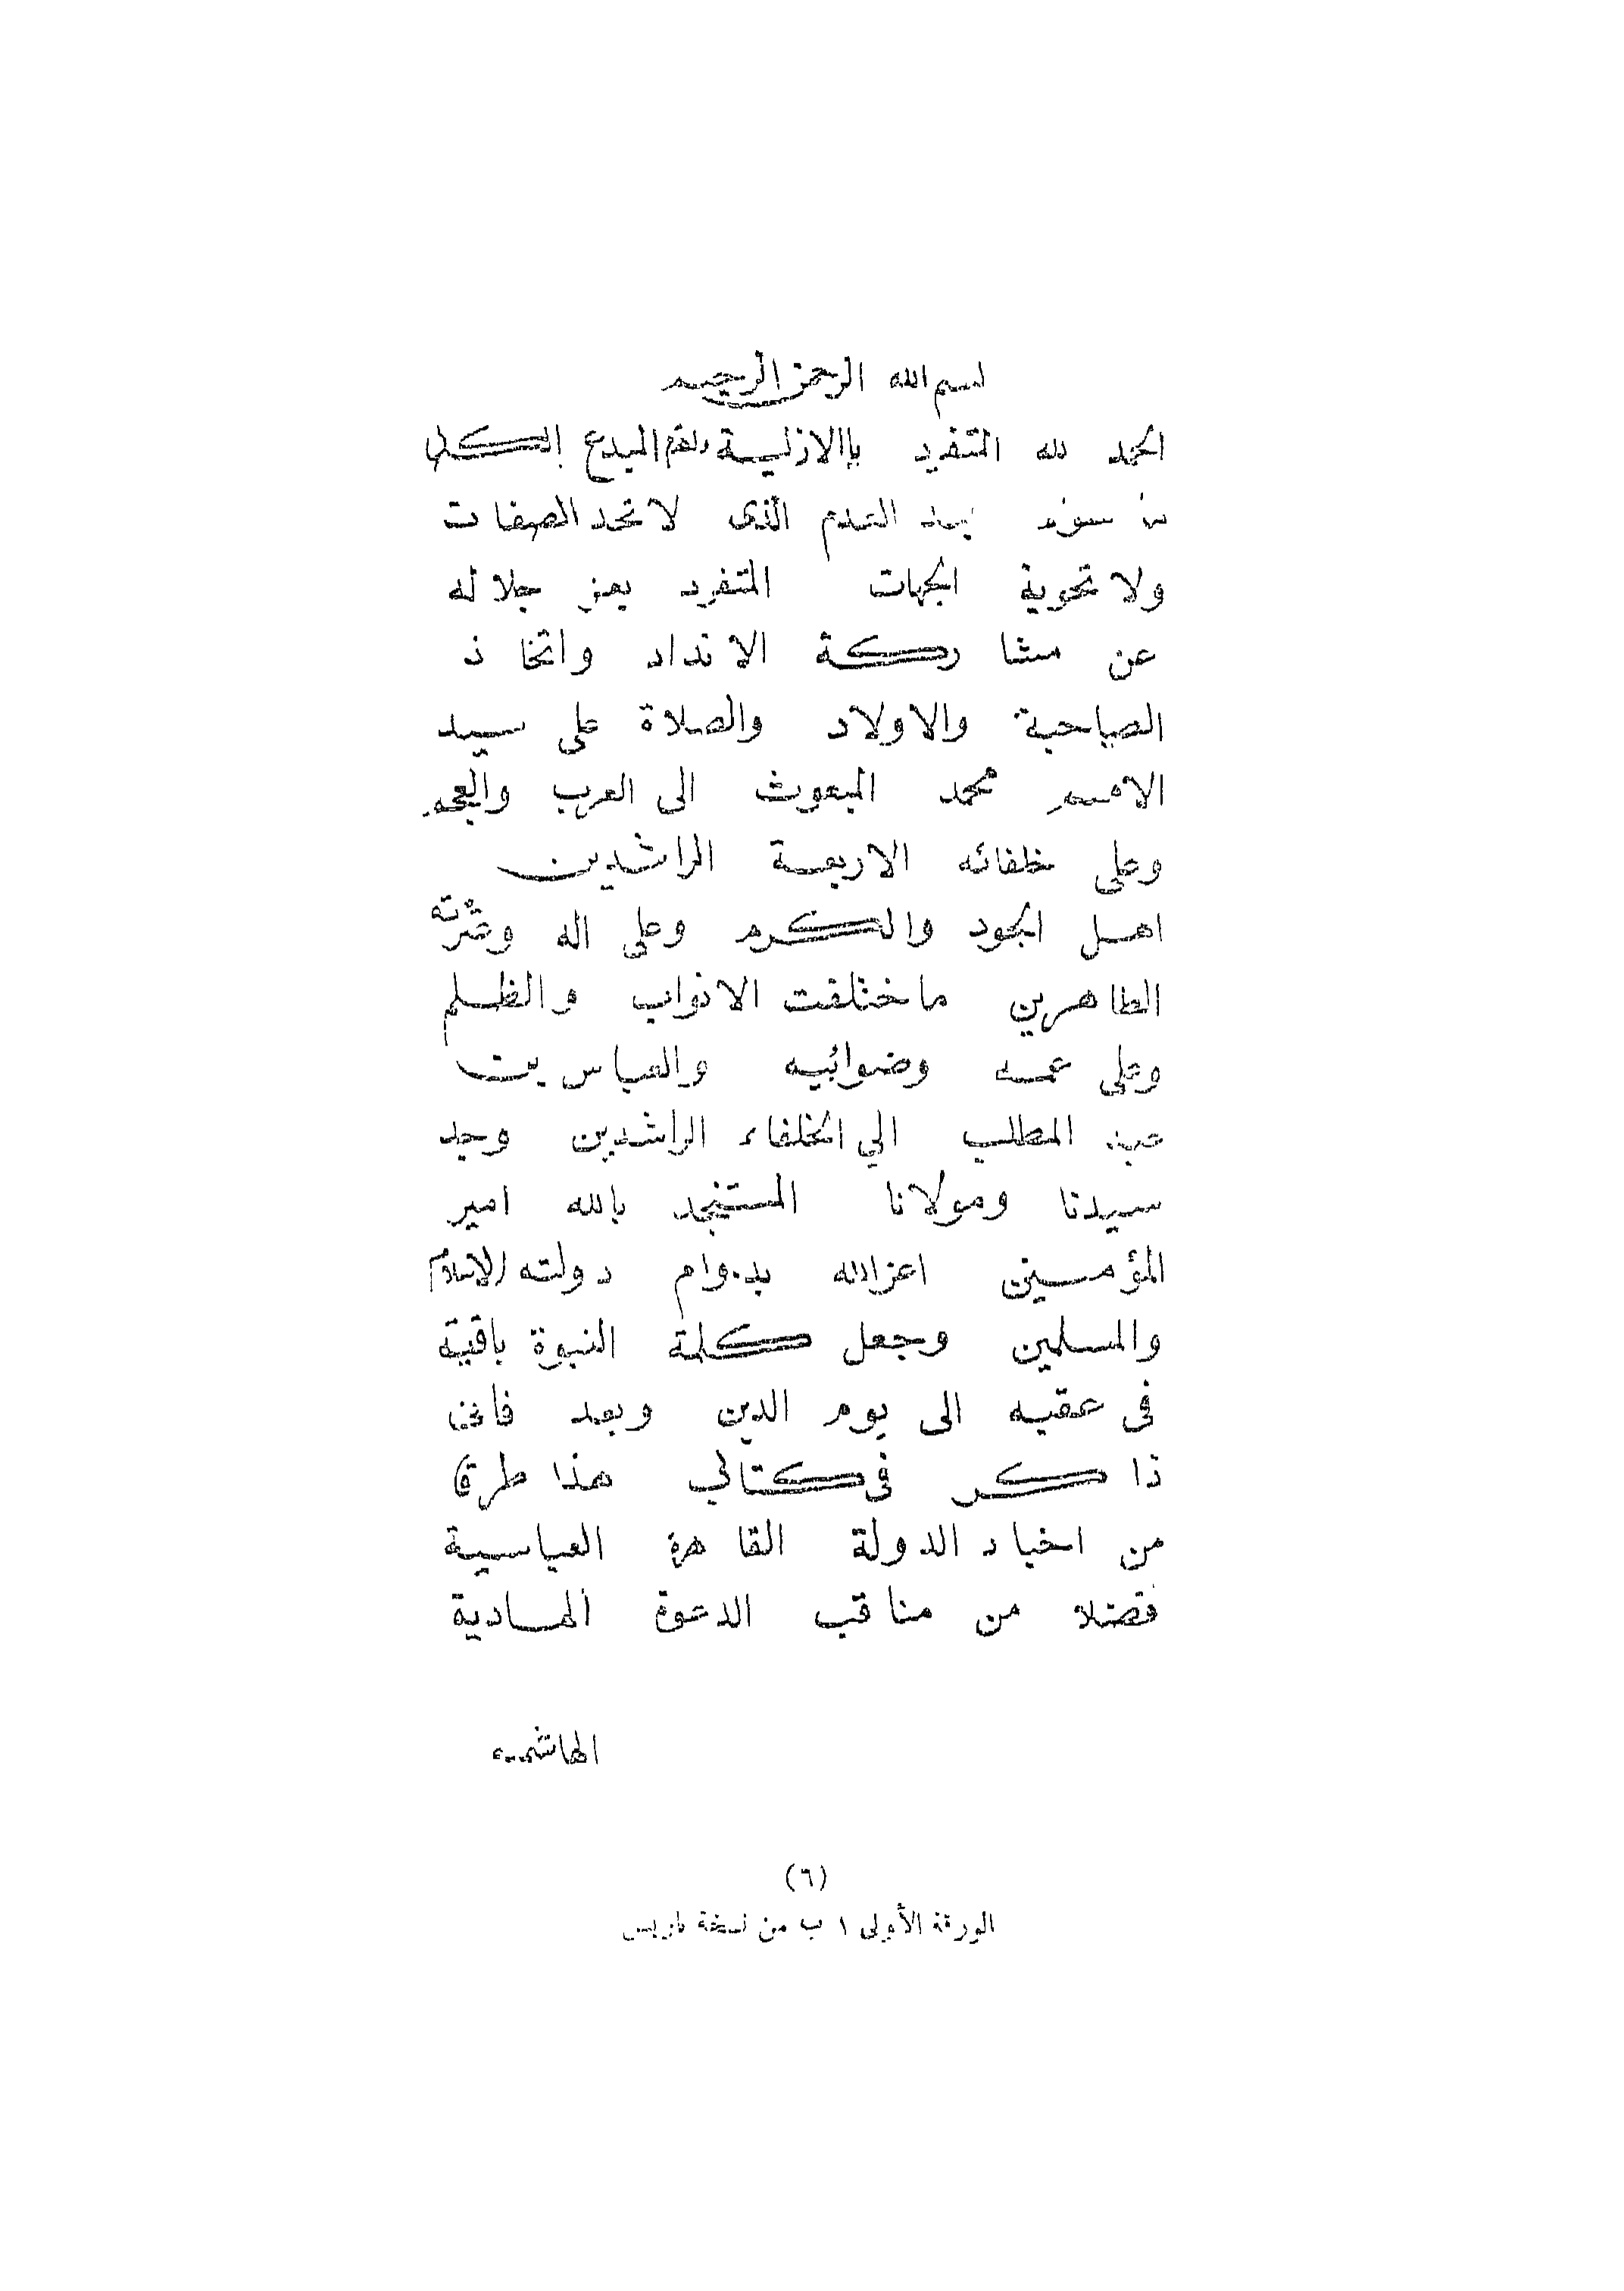 بسم الله الرحمن الرحيم
الحمد لله المتفرد باالازلية والقدم المبدع لكل
العدم الذى لا تحد الصفات
ولا تحوية الجهات المتفرد بعز جلاله
عن مشا ركة الانداد واتخا ذ
الصاحبة والاولاد والصلاة على سيد
الامم محمد المبعوث الى العرب والعجم
وعلى خلفائه الاربعة الراشدين
اهل الجود والكرم وعلى اله وعترته
الطاهرين ماختلفت الانواب والظلم
وعلى عمه وضوابيه والعباس بن
عبد المطلب الي الخلفاء الراشدين وجد
سيدنا ومولانا المستنجد بالله امير
المؤمنين اعزالله بدوام دولته الاسلام
والمسلمين وجعل كلمة النبوة باقية
فى عقبه الى يوم الدين وبعد فانى
ذا كر فى كتابي هذا طرفا
من اخبار الدولة القا هرة العباسية
فضلا من مناقب الدعوة الهادية
الهاشمية
(٦)
الورقة الأولى ١ ب من نسخة باريس